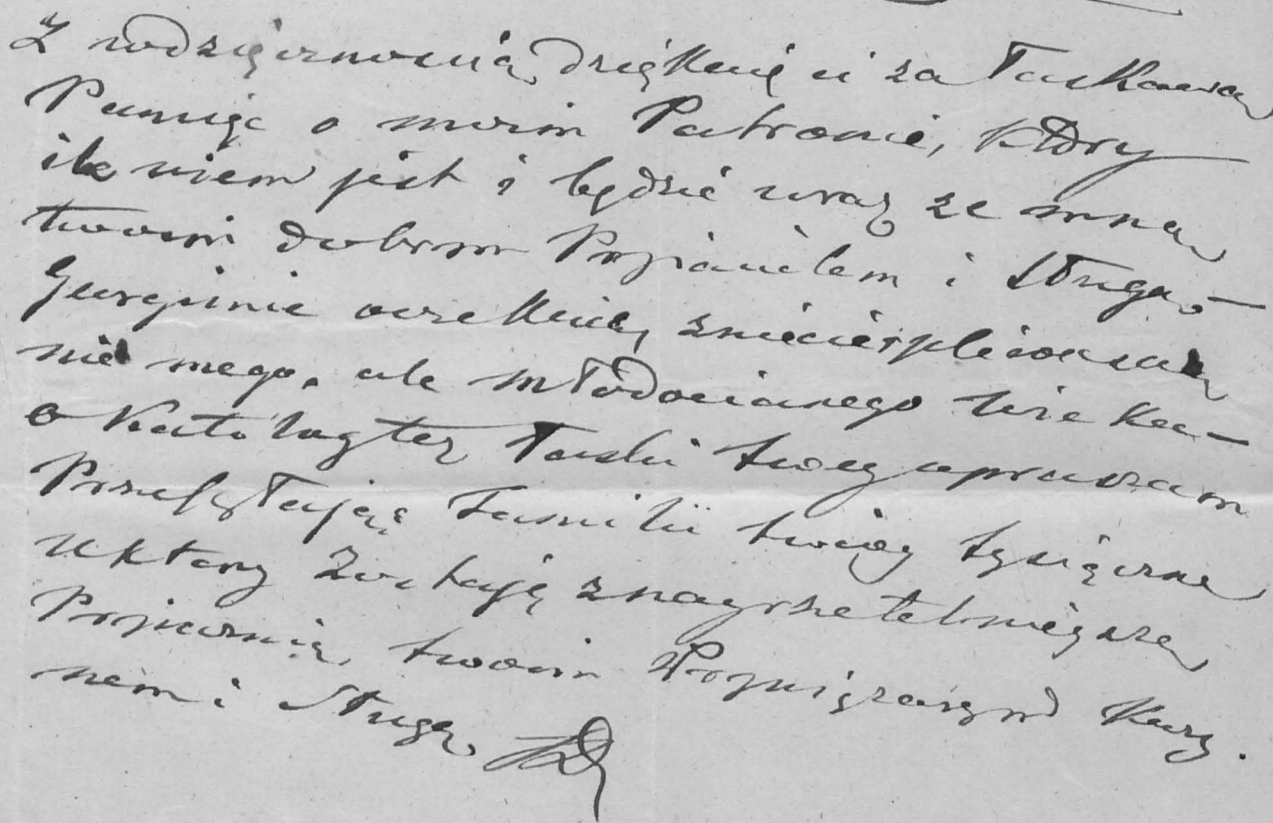 Z wdzięcznością dziękuię ci za łaskawą
Pamięć o moim Patronie, który
ile wiem jest i będzie wraz ze mną
twoim dobrym Przyjacielem i sługą –
oczekuię zniecierpliwością
nie mego, ale młodocianego wieku –
o Katalog też łaski twoey upraszam
Przesyłając Familii twoiey tysiączne
ukłony Zostaję z nayrzetelnieyszą
Przyiaznią, twoim Przywiązanym Kuzy.
nem i sługą